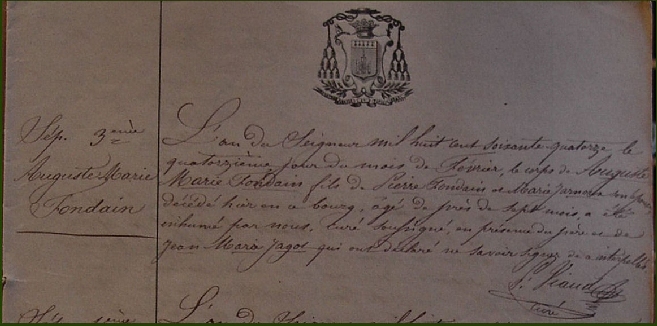 Sép. 3ème
Auguste Marie
Fondain
L'an du Seigneur mil huit cent soixante-quatorze le
quatorzième jour du mois de Février, le corps de Auguste
Marie Fondain fils de Pierre Fondain et Marie
décédé hier en ce bourg, âgé de près de sept mois, a été
inhumé par nous, curé soussigné, en présence du père et de
Jean Marie Jagot qui ont déclaré ne savoir signer de ce interpellés
Viaud
curé
Sép.
L'an du Seigneur mil huit